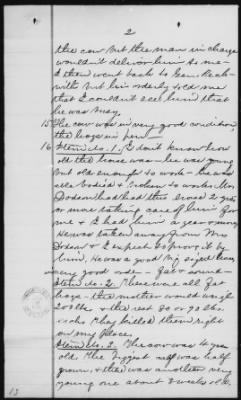 2
the cow but the man in charge
wouldn't deliver him to me -
I then went back to Gen. Beck-
with but his orderly told me
that I couldn't see him that
he was busy.
15 The cow was in very good condition,
the hogs in fair
16 Item No. 1. I don't know how
old the horse was - he was young
but old enough to work - he was
able bodied & broken to work. Mr.
Dodson had had this horse 2 years
or more taking care of him for
me & I had him a year among
He was taken away from Mr.
Dodson & I expect to prove it by
him. He was a good big sized horse
very good order - fat & sound -
Item No. 2. These were all fat
hogs - the mother would weigh
200 lbs & the rest 80 or 90 lbs.
each. They killed them right
on my place.
Item No. 3. The cow was 4 years
old. The biggest calf was half
grown, & there was another very
young one about 3 weeks old.
13